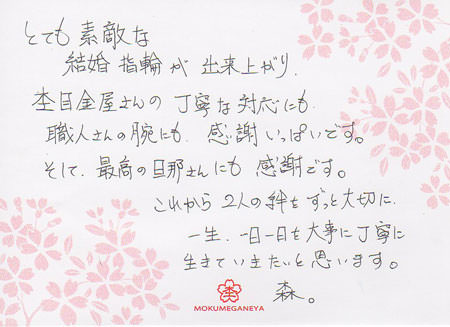 とても素敵な
結婚指輪が出来上がり、
杢目金屋さんの丁寧な対応にも、
職人さんの腕にも、感謝いっぱいです。
そして、最高の旦那さんにも感謝です。
これから2人の絆をずっと大切に、
一生、一日一日を大事に丁寧に
生きていきたいと思います。
森。
MOKUMEGANEYA